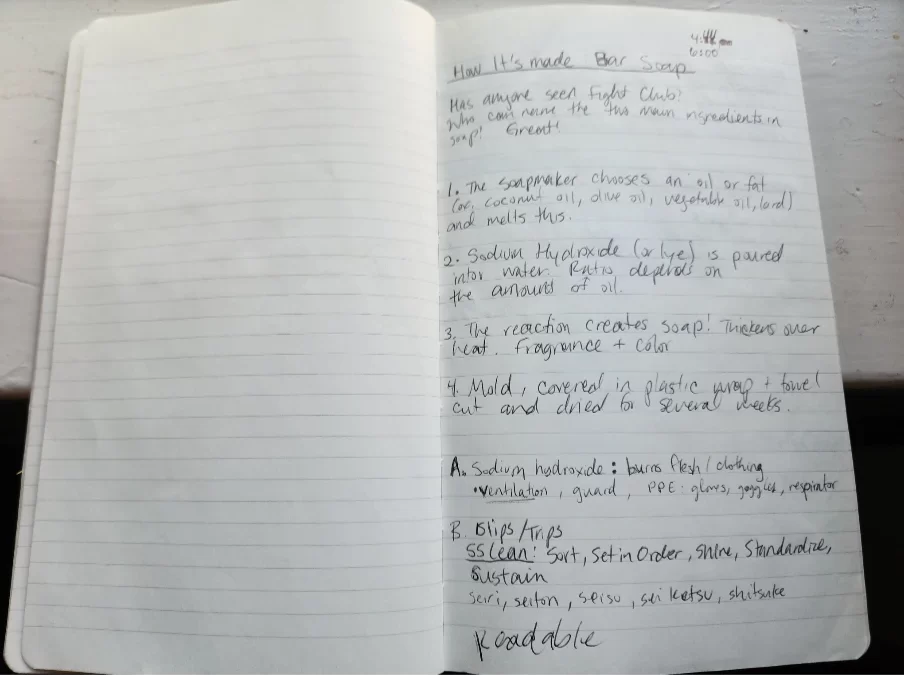 4:
6:00
How It's made Bar Soap
Has anyone seen Fight Club?
Who can name the two main ingredients in
soap! Great!
1. The soapmaker chooses an oil or fat
coconut oil, olive oil, vegetable oil, lard)
and melts this.
2. Sodium Hydroxide (or lye) is poured
into water. Ratio depends on
the amount of oil.
3. The reaction creates soap! Thickens over
heat. Fragrance + color
4. Mold, covered in plastic wrap + towel
cut and dried for several weeks.
A. Sodium hydroxide: burns flesh/clothing
• ventilation, guard, PPE: gloves, goggles, respirator
B. Slips/Trips
5S Lean: Sort, Set in Order, Shine, Standardize,
Sustain
seiri, seiton, seisu, sei ketsu, shitsuke